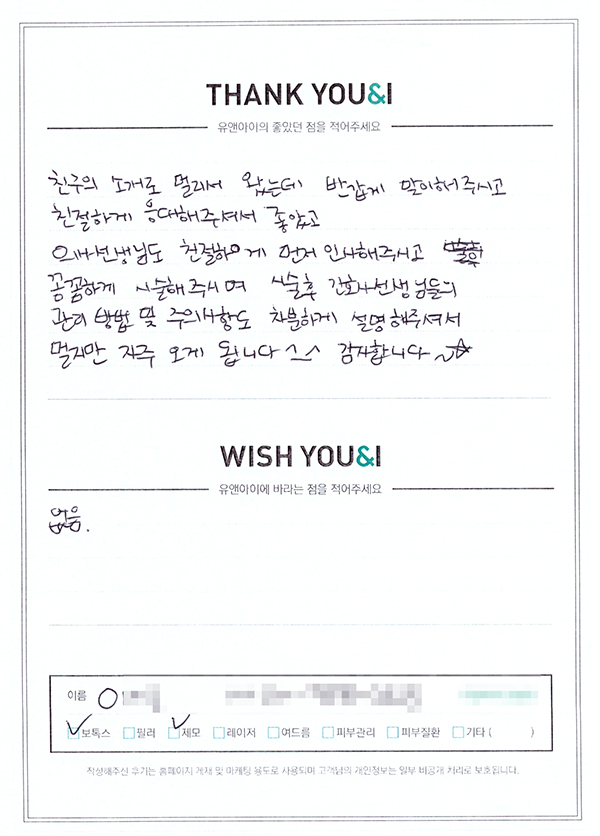 THANK YOU&I
유앤아이의 좋았던 점을 적어주세요
친구의 소개로 멀리서 왔는데 반갑게 맞이해주시고
친절하게 응대해주셔서 좋았고
의사선생님도 친절하게 먼저 인사해주시고
꼼꼼하게 시술해주시며 시술후 간호사선생님들의
관리 방법 및 주의사항도 차분하게 설명해주셔서
멀지만 자주 오게 됩니다 ^^ 감사합니다~☆
WISH YOU&I
유앤아이에 바라는 점을 적어주세요
없음.
이름
보톡스 필러 제모 레이저 여드름 피부관리 피부질환 기타 ( )
작성해주신 후기는 홈페이지 게재 및 마케팅 용도로 사용되며 고객님의 개인정보는 일부 비공개 처리로 보호됩니다.